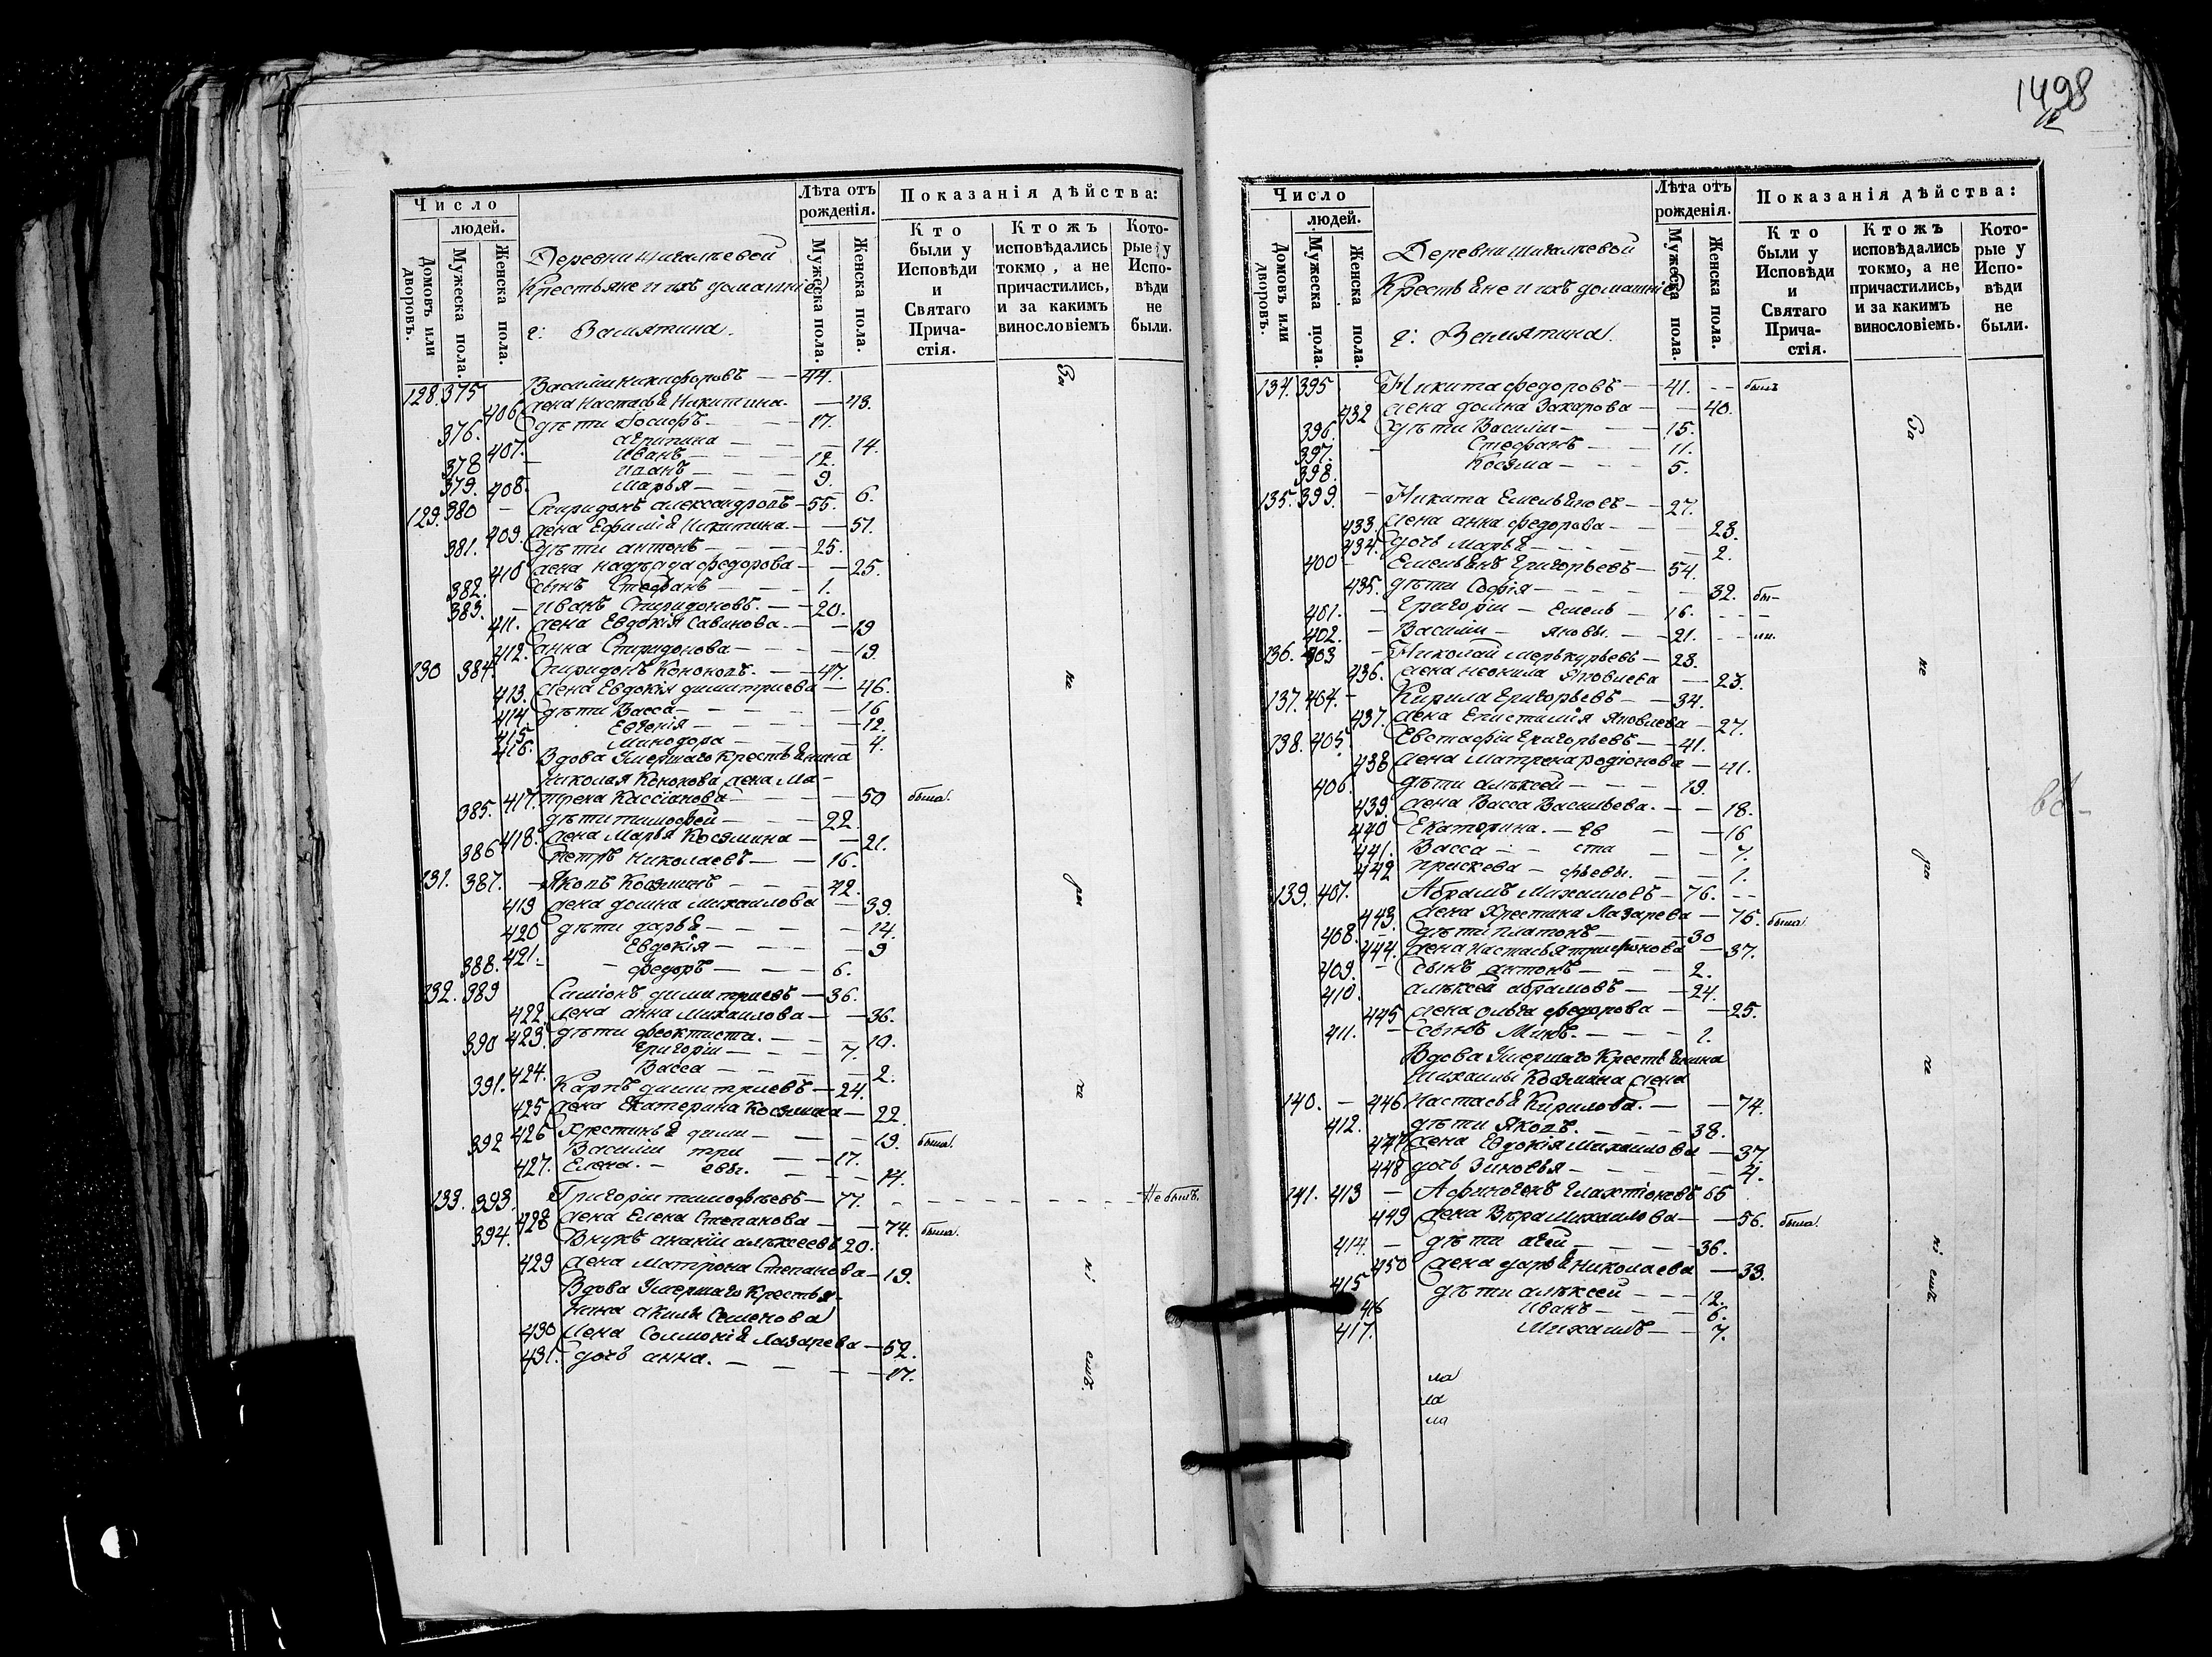 1498
Число
людей.
Домовъ или дворовъ.
Мужеска пола.
Женска пола.
Деревни Шигалеевой
Крестьяне и ихъ домашніе
г: Вамятина.
Лѣта отъ рожденія.
Мужеска пола.
Женска пола.
Показанія дѣйства:
Кто были у Исповѣди и Святаго Причастія.
Ктожъ исповѣдались токмо, а не причастились, и за какимъ винословіемъ
Которые у Исповѣди не были.
128. 375 Василій Никифоровъ — 44.
406 жена Настасья Никитина — 43.
376. дѣти Іосифъ — 17.
407. Агрипина — 14.
378 Иванъ — 12.
379. Иванъ — 9.
408. Марья — 6.
129. 380 Спиридонъ Александровъ — 55.
409. жена Ефимія Никитина — 51.
381. дѣти Антонъ — 25.
410 жена Надежда Федорова — 25.
382. сынъ Стефанъ — 1.
383. Иванъ Спиридоновъ. — 20.
411. жена Евдокія Савинова — 19
412. Анна Спиридонова — 19.
130 384. Спиридонъ Кононовъ. — 47.
413. жена Евдокія Димитриева — 46.
414 дѣти Васса — 16
415. Евгенія — 12.
416. Минодора — 4.
Вдова Умершаго Крестьянина
Николая Кононова жена Ма-
417. трена Кассіанова — 50 была.
385. дѣти Тимофей — 22.
418. жена Марья Козмина — 21.
386 Петръ Николаевъ — 16.
131. 387. Яковъ Козминъ — 42.
419 жена Домна Михаилова — 39.
420 дѣти Дарья — 14.
421. Евдокія — 9
388. Федоръ — 6.
132. 389 Симіонъ Димитриевъ — 36.
422. жена Анна Михаилова — 36.
423. дѣти Феоктиста. — 10.
390 Григорій — 7.
424. Васса — 2.
391. Карпъ Димитриевъ — 24.
425 жена Екатерина Козмина — 22.
426 Хрестинья Дими — 19. была.
392 Василій три — 17.
427. Елена. — евы. — 14.
133. 393. Григорій Тимофѣевъ — 77. — Не былъ.
428 жена Елена Степанова — 74. была.
394. Внукъ Ананій Алексеевъ 20.
429 жена Матрона Степанова — 19.
Вдова Умершаго Крестья-
нина Акилы Семенова
430 жена Соломонія Лазарева — 52.
431. дочь Анна. — 17.
За
не
ра
че
ні
емъ.
Число
людей.
Домовъ или дворовъ.
Мужеска пола.
Женска пола.
Деревни Шигалеевой
Крестьяне и ихъ домашніе
г: Вамятина.
Лѣта отъ рожденія.
Мужеска пола.
Женска пола.
Показанія дѣйства:
Кто были у Исповѣди и Святаго Причастія.
Ктожъ исповѣдались токмо, а не причастились, и за какимъ винословіемъ.
Которые у Исповѣди не были.
134. 395 Никита Федоровъ — 41. — былъ
432 жена Домна Захарова — 40.
396. дѣти Василій — 15.
397. Стефанъ — 11.
398. Козма — 5.
135. 399. Никита Емельяновъ — 27.
433. жена Анна Федорова — 23.
434. дочь Марья — 2.
400 Емельянъ Григорьевъ — 54.
435. дѣти Софія — 32. бы-
401. Григорій — Емель — 16.
402. Василій — яновы. — 21. — ли.
136. 403 Николай Меркурьевъ — 23.
436. жена Неонила Яковлева — 23.
137. 404. Кирила Григорьевъ — 34.
437. жена Епистимія Яковлева — 27.
138. 405. Евстафій Григорьевъ — 41.
438 жена Матрена Родіонова — 41.
406. дѣти Алексей — 19.
439. жена Васса Васильева. — 18.
440 Екатерина. — Ев — 16
441. Васса — ста — 7.
442 Прискева — фьевы. — 1.
139. 407. Абрамъ Михаиловъ — 76.
443. жена Хрестина Лазарева — 75. была.
408. дѣти Платонъ — 30
444. жена Настасья Трифонова — 37.
409. сынъ Антонъ — 2.
410. Алексей Абрамовъ — 24.
445 жена Ольга Федорова — 25.
411. сынъ Минъ. — 2.
Вдова Умершаго Крестьянина
Михаилы Козмина жена
140. — 446 Настасья Кирилова. — 74.
412. дѣти Яковъ. — 38.
447 жена Евдокія Михаилова — 37.
448 дочь Зиновья — 4.
141. 413 Афиногенъ Галахтіоневъ 55
449 жена Вера Михаилова — 56. была.
414. дѣти Агей — 36.
450 жена Дарья Николаева — 33.
415 дѣти Алексей — 12.
416 Иванъ — 6.
417. Михаилъ — 7.
За
не
ра
че
ні емъ
ла
ла
ла